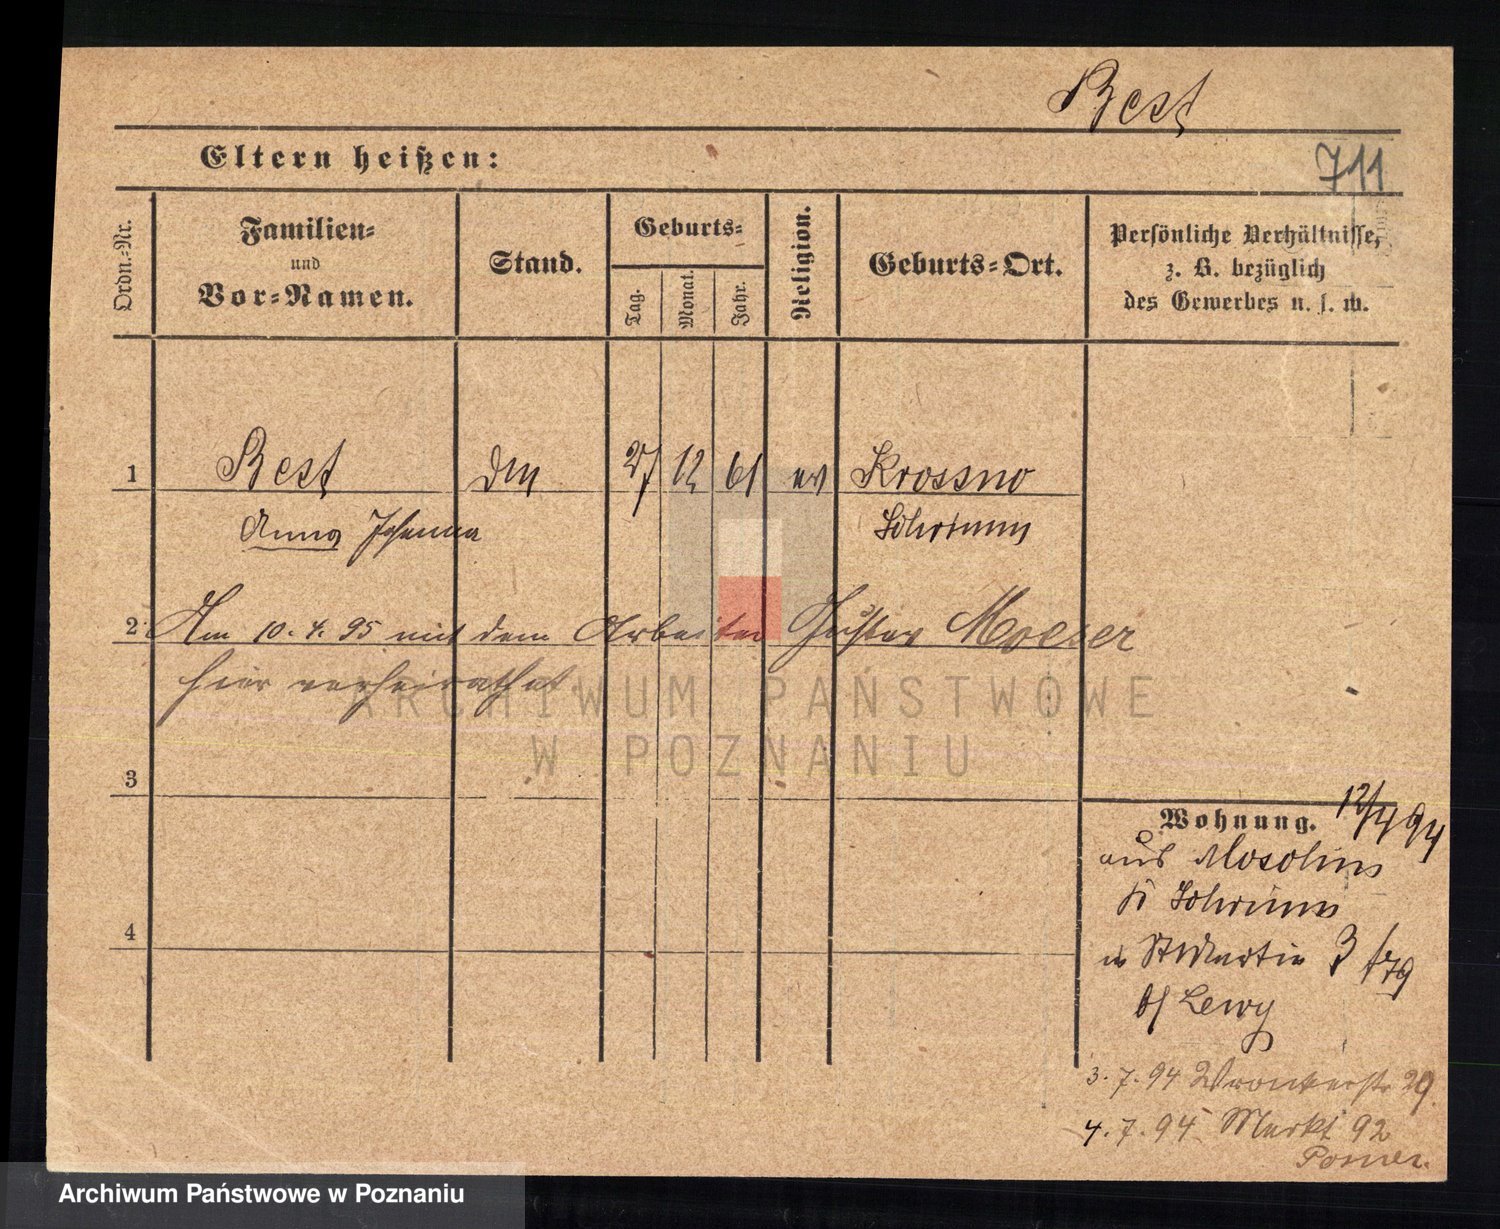 Best
Eltern heißen:
711
Ordn.-Nr.
Familien-
und
Vor-Namen.
Stand.
Geburts-
Tag.
Monat.
Jahr.
Religion.
Geburts-Ort.
Persönliche Verhältnisse,
z. B. bezüglich
des Gewerbes u. s. w.
1 Best 27 12 61 ev Krossno
Anna Johanna Schrimm
2 Am 10. 4. 95 mit dem Arbeiter Gustav Moeser
hier verheirathet.
ARCHIWUM PAŃSTWOWE
W POZNANIU
3
4
Wohnung. 12/4 94
aus Mosolin
Schrimm
St Martin 3
b/ Lewy
3. 7. 94 Wronkerstr 29.
4. 7. 94 Markt 92
Archiwum Państwowe w Poznaniu